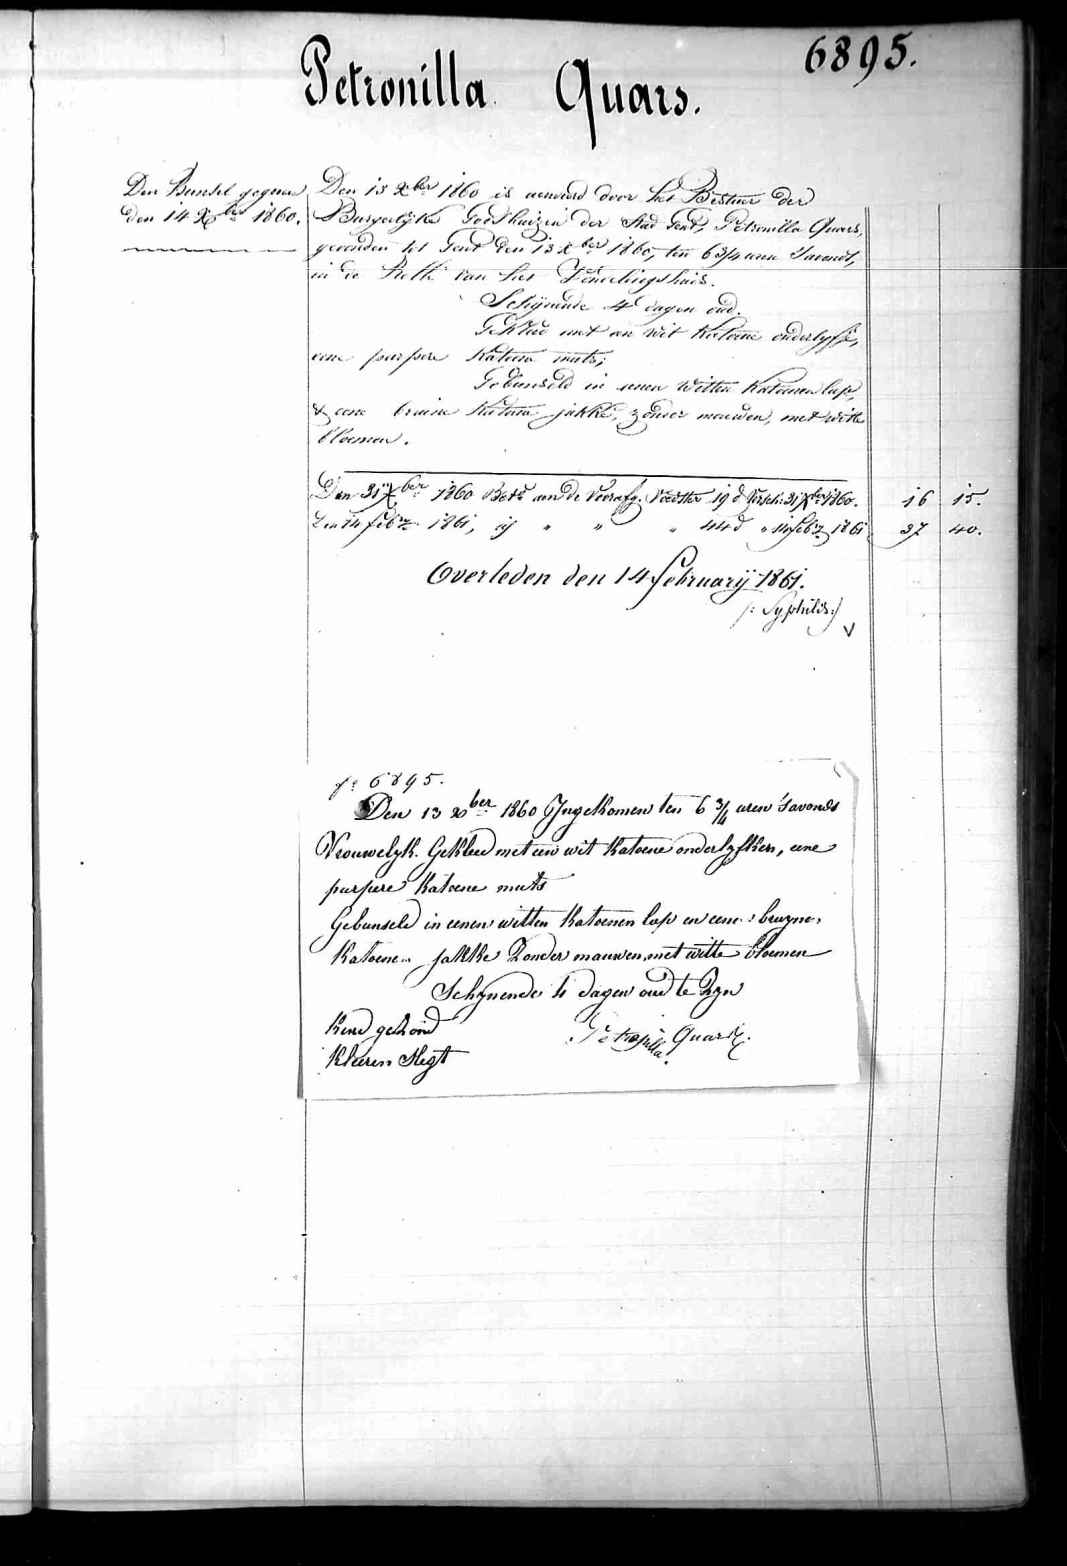 6895.
Petronilla Quars.
Den Bunsel gegeven
den 14 Xber 1860.
Den 13 Xber 1860 is aenveerd door het Bestuur der
Burgerlyke Godshuizen der Stad Gent, Petronilla Quars,
gevonden tot Gent den 13 Xber 1860, ten 6 3/4 uren 'savonds,
in de Rolle van het Vondelingshuis.
Schynende 4 dagen oud.
Gekleed met een wit katoene onderlyfje,
eene purpere katoene muts;
Gebunseld in eenen witten katoenen lap,
& eene bruine katoene jakke, zonder mouwen, met witte
bloemen.
Den 31 Xber 1860 Betd aen de Voorafg. Voedster 19 d Versch: 31 Xber 1860. 16 15.
Den 14 febry 1861, ij " " " 44 d " 14 febry 1861 37 40.
Overleden den 14 february 1861.
/: Syphilis:/
f: 6895.
Den 13 xber 1860 Ingekomen ten 6 3/4 uren 'savonds
Vrouwelyk. Gekleed met een wit katoene onderlyfken, eene
purpere katoene muts
Gebunseld in eenen witten katoenen lap en eene bruyne
katoene jakke Zonder mauwen met witte bloemen
Schynende 4 dagen oud te Zyn
Kend gezond
Petronilla Quars.
Kleeren Slegt